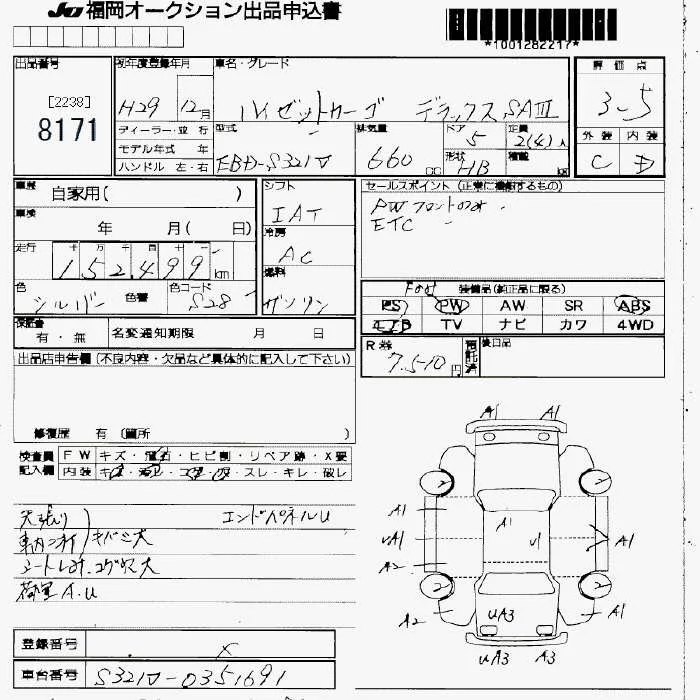 JU 福岡オークション出品申込書
*1001282217*
出品番号
[2238]
8171
初年度登録年月
H29 12月
車名・グレード
ハイゼットカーゴ デラックスSAⅢ
評価点
3.5
外装 内装
C D
ディーラー・並行
モデル年式 年
ハンドル 左・右
型式
EBD-S321V
排気量
660 cc
ドア
5
形状
HB
定員
2(4)人
積載
kg
車歴
自家用( )
車検
年 月( 日)
走行
十 万 千 百 十 一
152,499 km
色
シルバー 色替
色コード
S28
シフト
IAT
冷房
AC
燃料
ガソリン
セールスポイント (正常に機能するもの)
PWフロントのみ
ETC
装備品(純正品に限る)
PS PW AW SR ABS
エアB TV ナビ カワ 4WD
保証書
有・無
名変通知期限 月 日
R券
7.510円
預託済
後日品
出品店申告欄 (不良内容・欠品など具体的に記入して下さい)
修復歴 有 (箇所 )
検査員 記入欄
FW キズ・飛石・ヒビ割・リペア跡・X要
内装 キ・・コゲ・・スレ・キレ・破レ
天張り
車内
キバミ大
エンドパネルU
シート コゲ穴大
荷室A.U
A1 A1
A1 A1
UA1 U1 A1
A2
A2 UA3 A1
UA3 A3
登録番号
X
車台番号 S321V-0351691